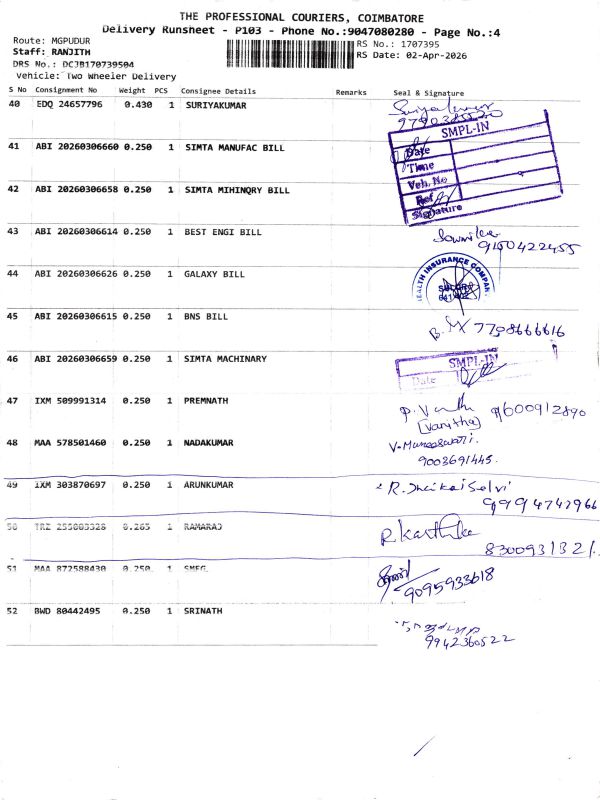 THE PROFESSIONAL COURIERS, COIMBATORE
Delivery Runsheet - P103 - Phone No.:9047080280 - Page No.:4
Route: MGPUDUR
RS No.: 1707395
Staff: RANJITH
RS Date: 02-Apr-2026
DRS No.: DCJB170739504
Vehicle: Two Wheeler Delivery
S No Consignment No Weight PCS Consignee Details Remarks Seal & Signature
40 EDQ 24657796 0.430 1 SURIYAKUMAR
Suriyakumar
SMPL-IN
Date
Time
Veh. No
Ref
Signature
41 ABI 20260306660 0.250 1 SIMTA MANUFAC BILL
42 ABI 20260306658 0.250 1 SIMTA MIHINQRY BILL
43 ABI 20260306614 0.250 1 BEST ENGI BILL
9160422455
44 ABI 20260306626 0.250 1 GALAXY BILL
HEALTH INSURANCE COMPAN
45 ABI 20260306615 0.250 1 BNS BILL
7708666616
46 ABI 20260306659 0.250 1 SIMTA MACHINARY
SMPL-IN
Date
47 IXM 509991314 0.250 1 PREMNATH
9600912890
(Vanitha)
48 MAA 578501460 0.250 1 NADAKUMAR
V. Muneeswari.
9003691445.
49 IXM 303870697 0.250 1 ARUNKUMAR
9994742966
50 TRZ 255883328 0.265 1 RAMARAJ
R Karthika
8300931321
51 MAA 872588430 0.250 1 SMFG
9095933618
52 BWD 80442495 0.250 1 SRINATH
9942360522